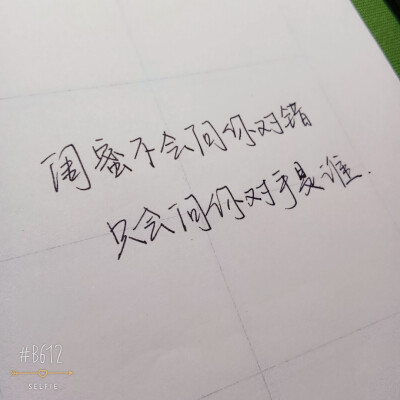 闺蜜不会问你对错
只会问你对手是谁.
#B612
SELFIE